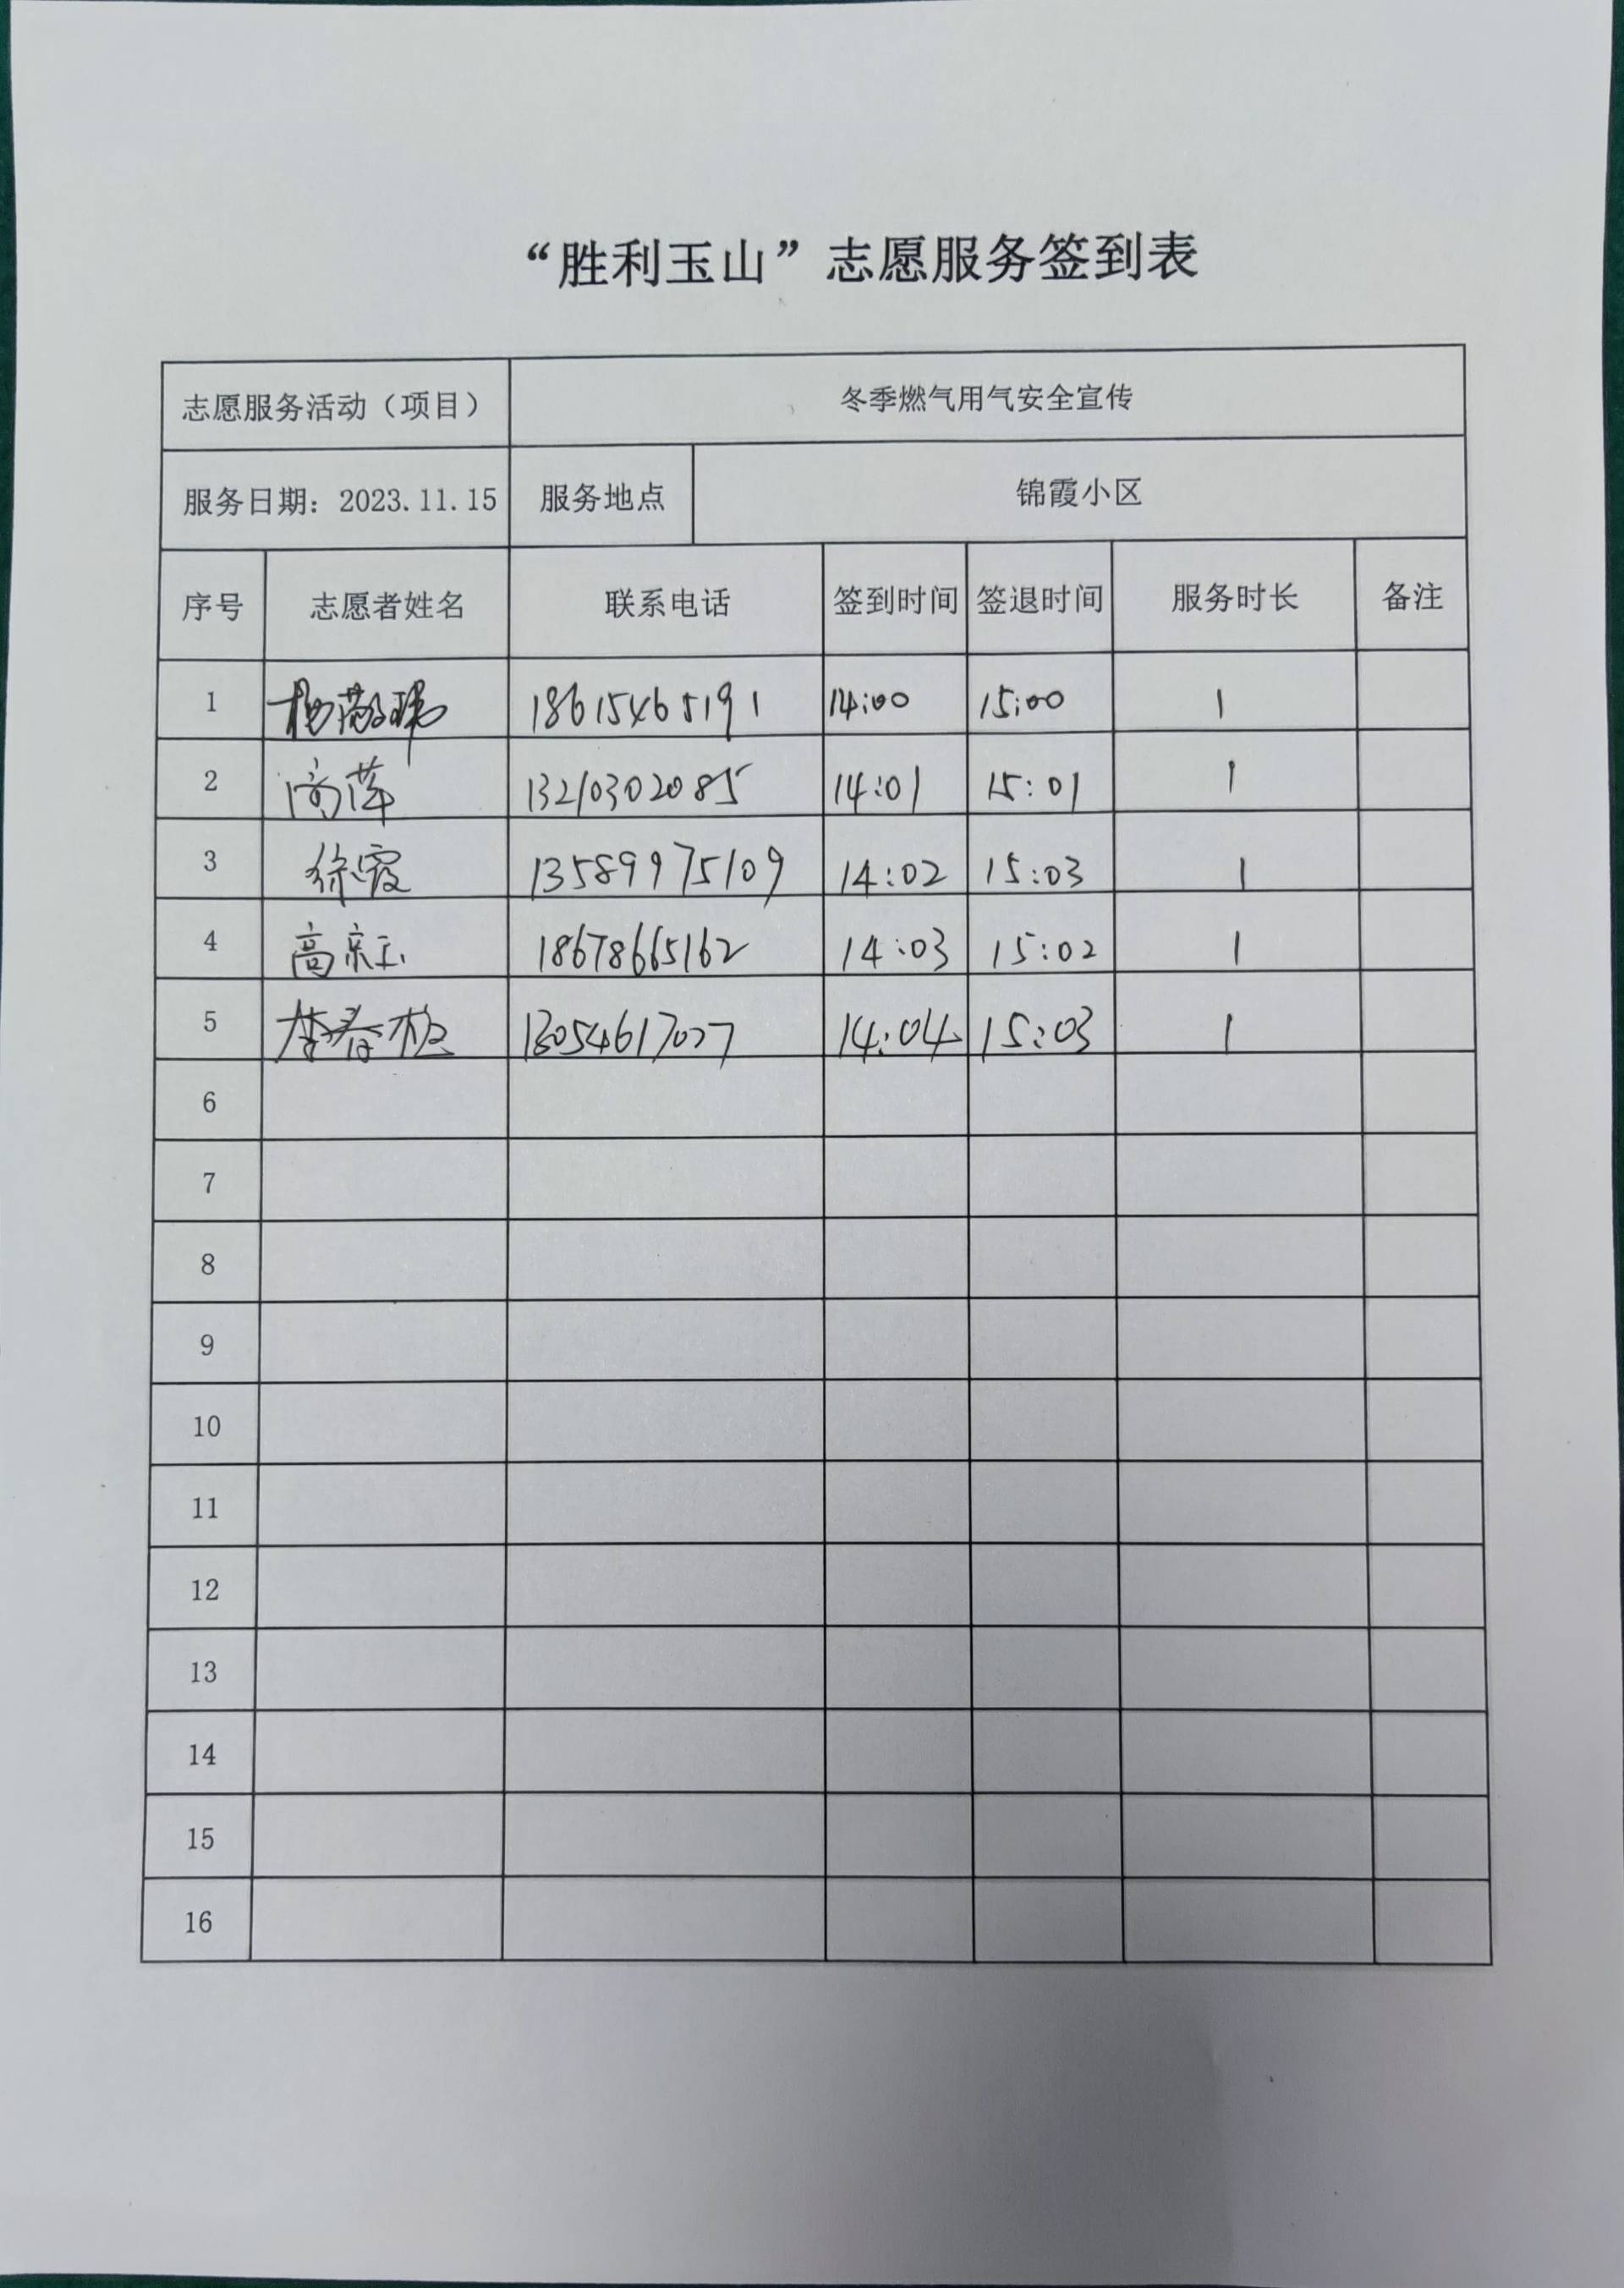 “胜利玉山”志愿服务签到表
志愿服务活动（项目） 冬季燃气用气安全宣传
服务日期：2023.11.15 服务地点 锦霞小区
序号 志愿者姓名 联系电话 签到时间 签退时间 服务时长 备注
1 18615465191 14:00 15:00 1
2 高萍 13210302085 14:01 15:01 1
3 徐霞 13589975109 14:02 15:03 1
4 高京玉 18678665162 14:03 15:02 1
5 李春 14:04 15:03 1
6
7
8
9
10
11
12
13
14
15
16